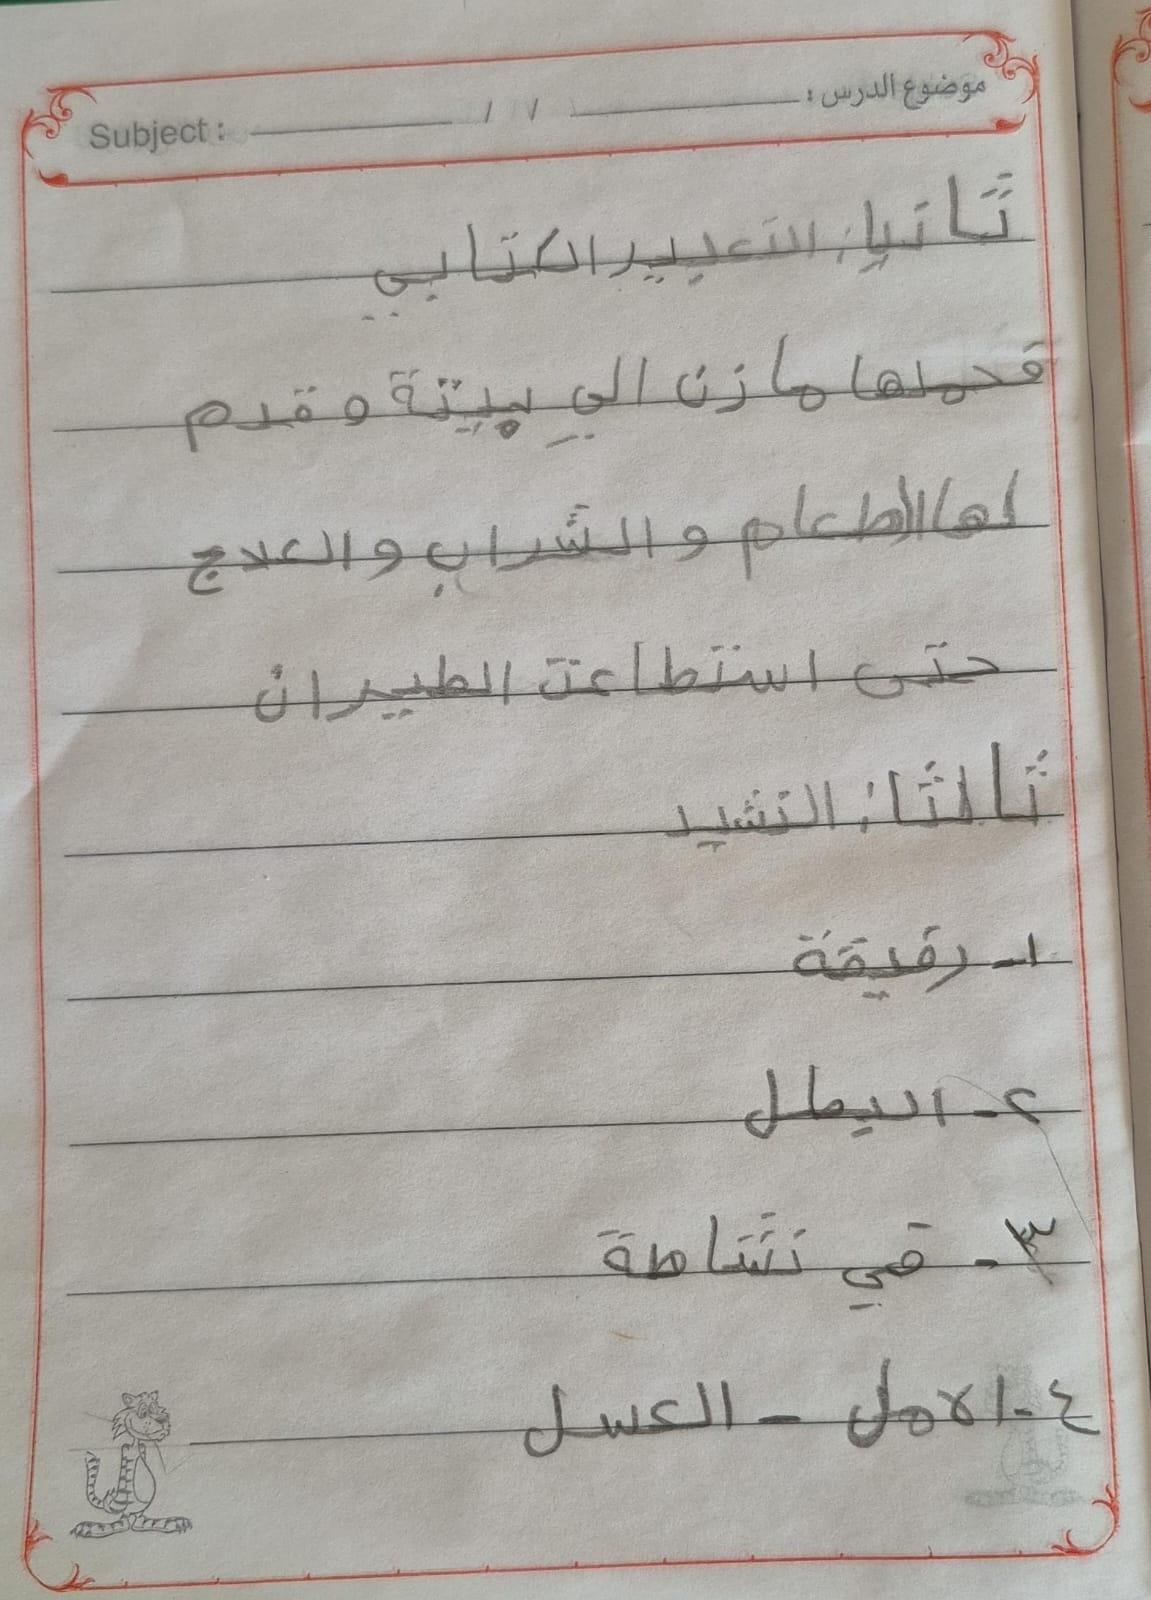 موضوع الدرس : / / Subject :
ثانيا: التعبير الكتابي
فحملها مازن الي بيتة و قدم
لها الطعام و الشراب و العلاج
حتى استطاعت الطيران
ثالثا: النشيد
١- رقيقة
٢- البطل
٣- في نشاطة
٤- الامل - العسل